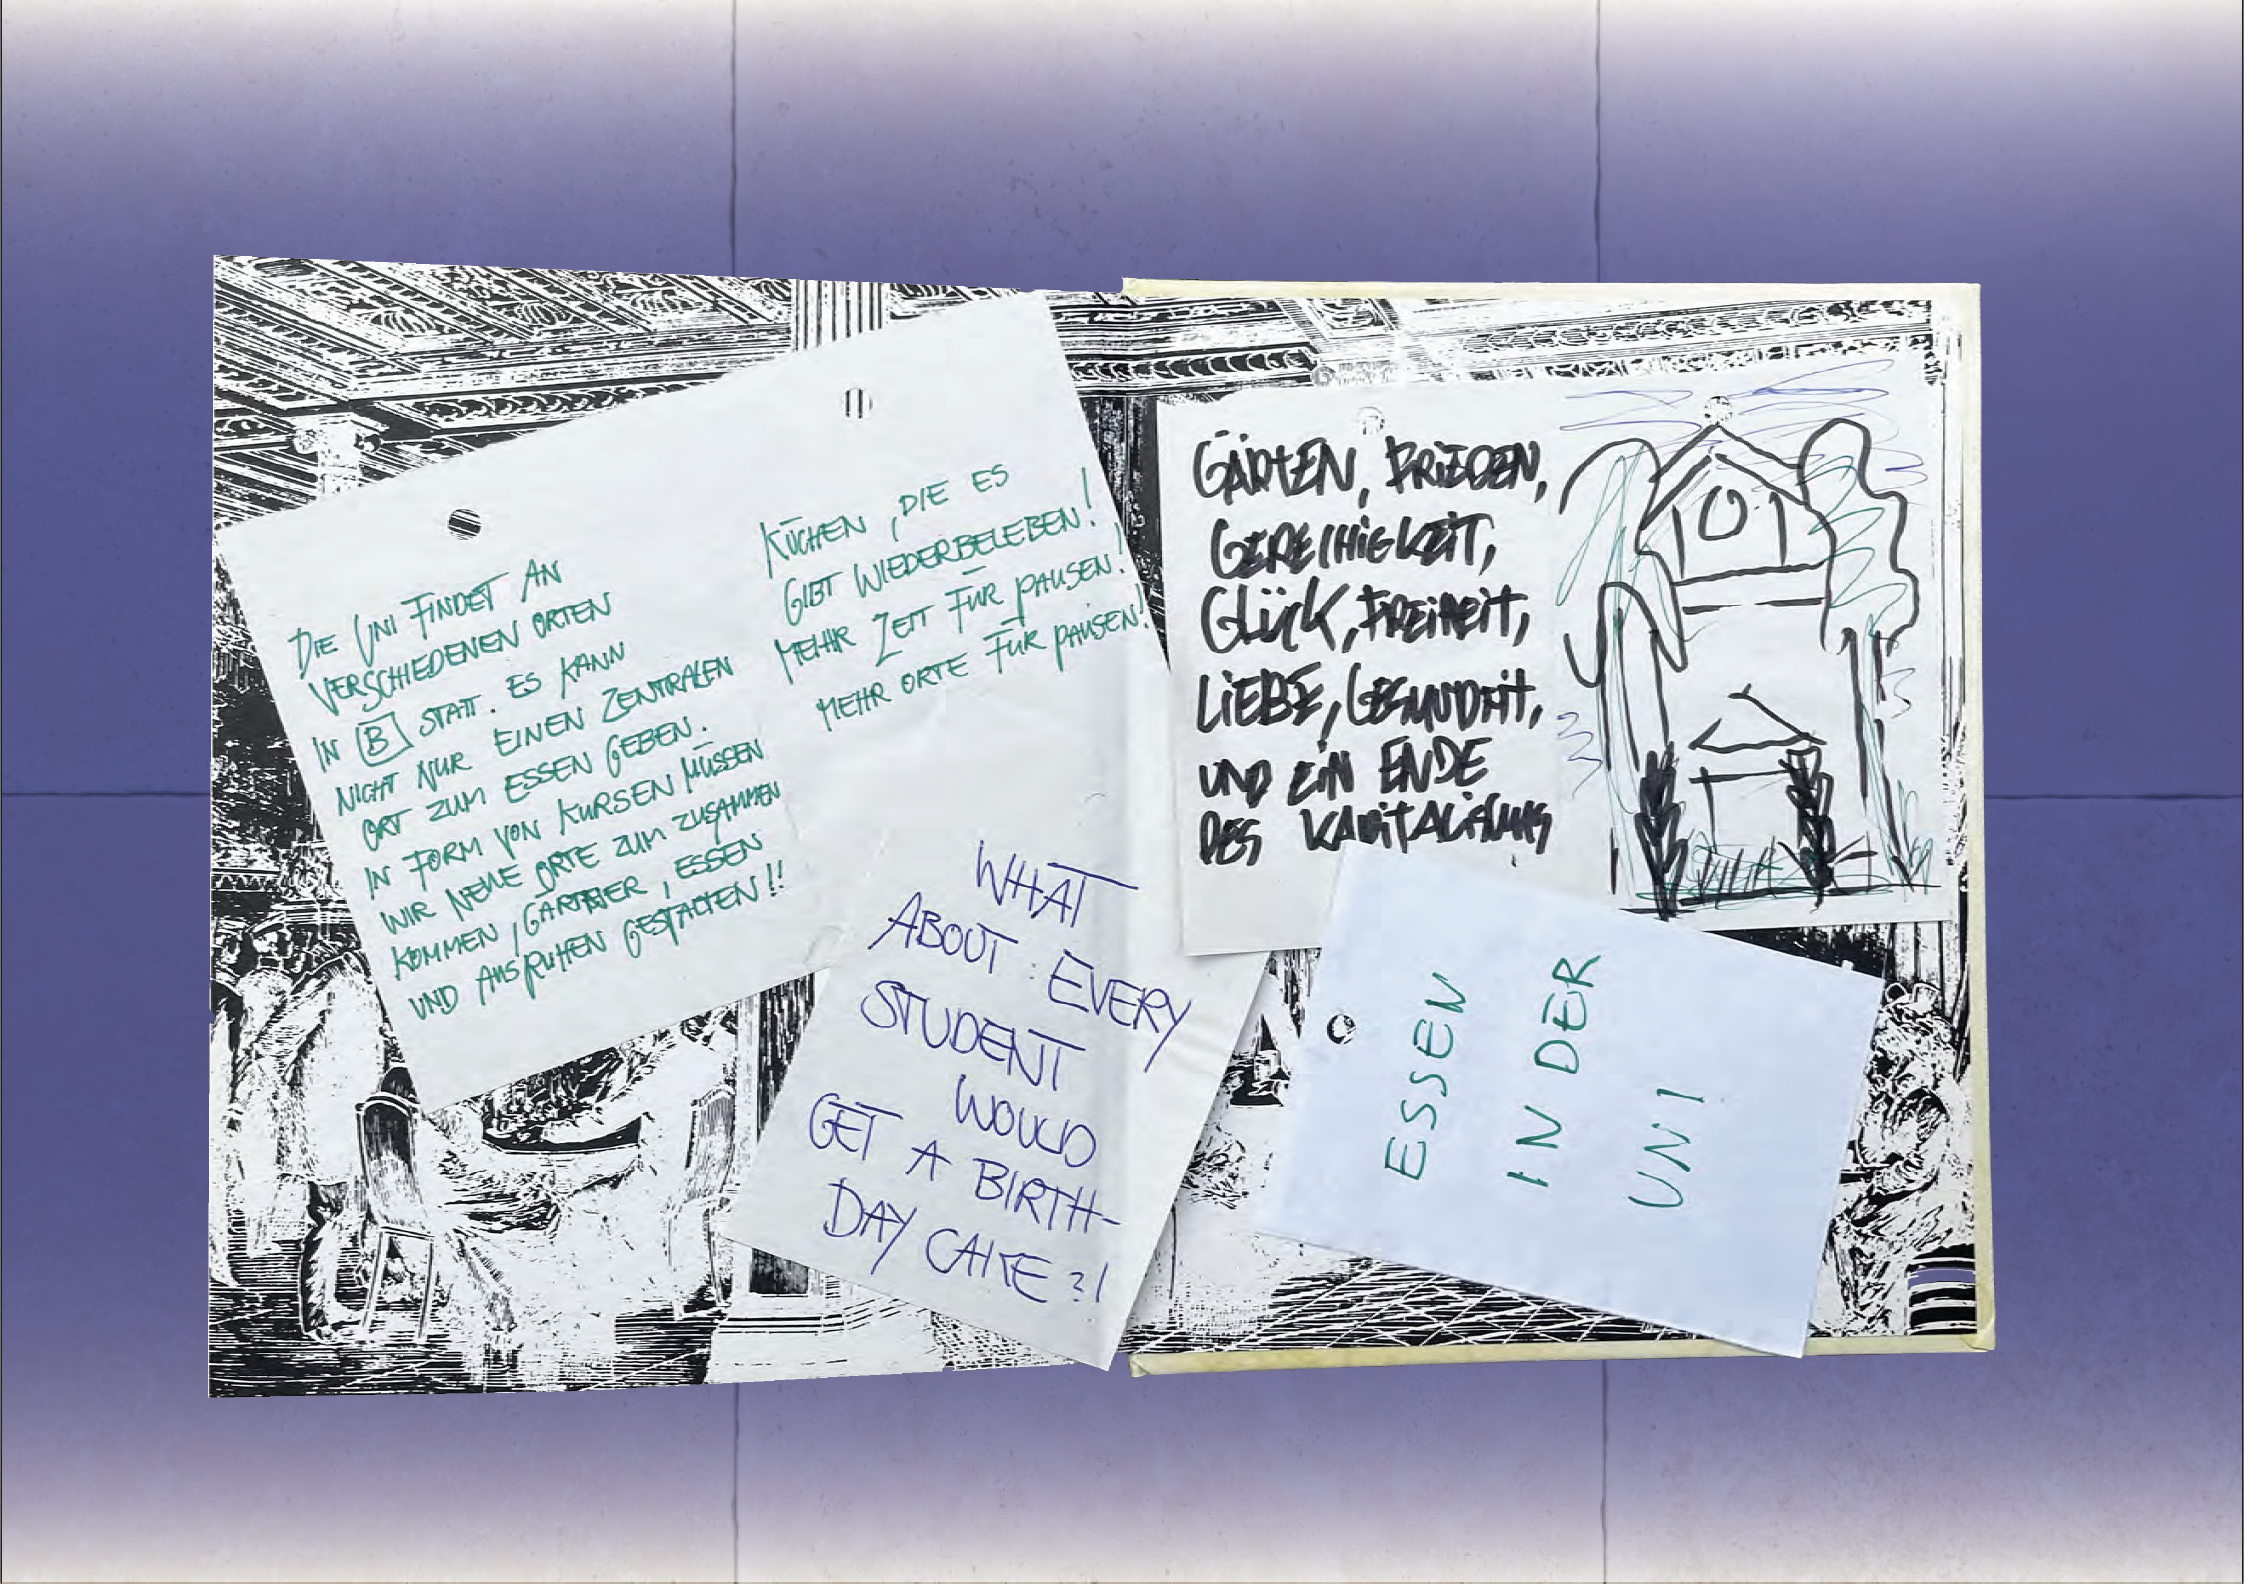 DIE UNI FINDET AN
VERSCHIEDENEN ORTEN
IN B STATT. ES KANN
NICHT NUR EINEN ZENTRALEN
ORT ZUM ESSEN GEBEN.
IN FORM VON KURSEN MÜSSEN
WIR NEUE ORTE ZUM ZUSAMMEN
KOMMEN, ESSEN
UND AUSRUHEN GESTALTEN!!
KÜCHEN, DIE ES
GIBT WIEDERBELEBEN!
MEHR ZEIT FÜR PAUSEN!
MEHR ORTE FÜR PAUSEN!
WHAT
ABOUT: EVERY
STUDENT
WOULD
GET A BIRTH-
DAY CAKE?!
GÄRTEN, FRIEDEN,
GERECHIGKEIT,
GLÜCK, FREIHEIT,
LIEBE, GESUNDHEIT,
UND EIN ENDE
DES KAPITALISMUS
ESSEN
IN DER
UNI